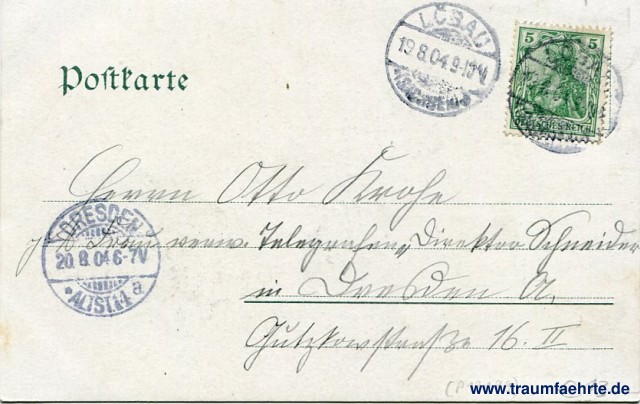 Postkarte
LÖBAU
19.8.04.9-10V
(SACHSEN)
5 5
DEUTSCHES REICH
Herrn Otto Krohe
Frau verw. Telegrafen-Direktor Schneider
in Dresden A.
Gutzkowstraße 16. II
DRESDEN
20.8.04.6-7V
* ALTST.14 a
www.traumfaehrte.de